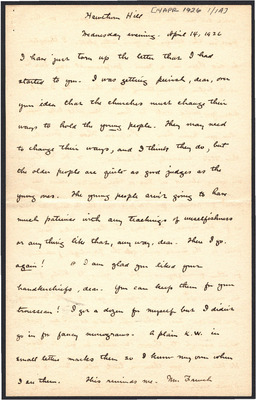 [14APR 1926 1/1A]
Hawthorn Hill
Wednesday evening. April 14, 1926
I have just torn up the letter that I had
started to you. I was getting peevish, dear, over
your idea that the churches must change their
ways to hold the young people. They may need
to change their ways, and I think they do, but
the older people are quite as good judges as the
young ones. The young people aren't going to have
much patience with any teachings of unselfishness
or any thing like that, any way, dear. There I go
again! I am glad you liked your
handkerchiefs, dear. You can keep them for your
trousseau! I got a dozen for myself but I didn't
go in for fancy monograms. A plain K.W. in
small letters marks them so I know my own when
I see them. This reminds me. Mrs. French